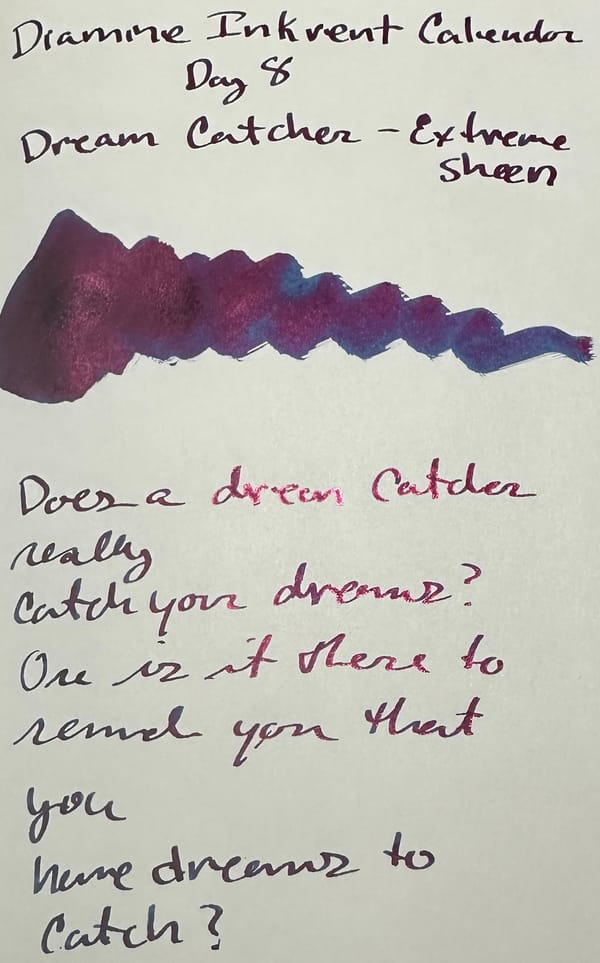 Diamine Inkvent Calendar
Day 8
Dream Catcher - Extreme
Sheen
Does a dream Catcher
really
Catch your dreams?
Or is it there to
remind you that
you
have dreams to
Catch?